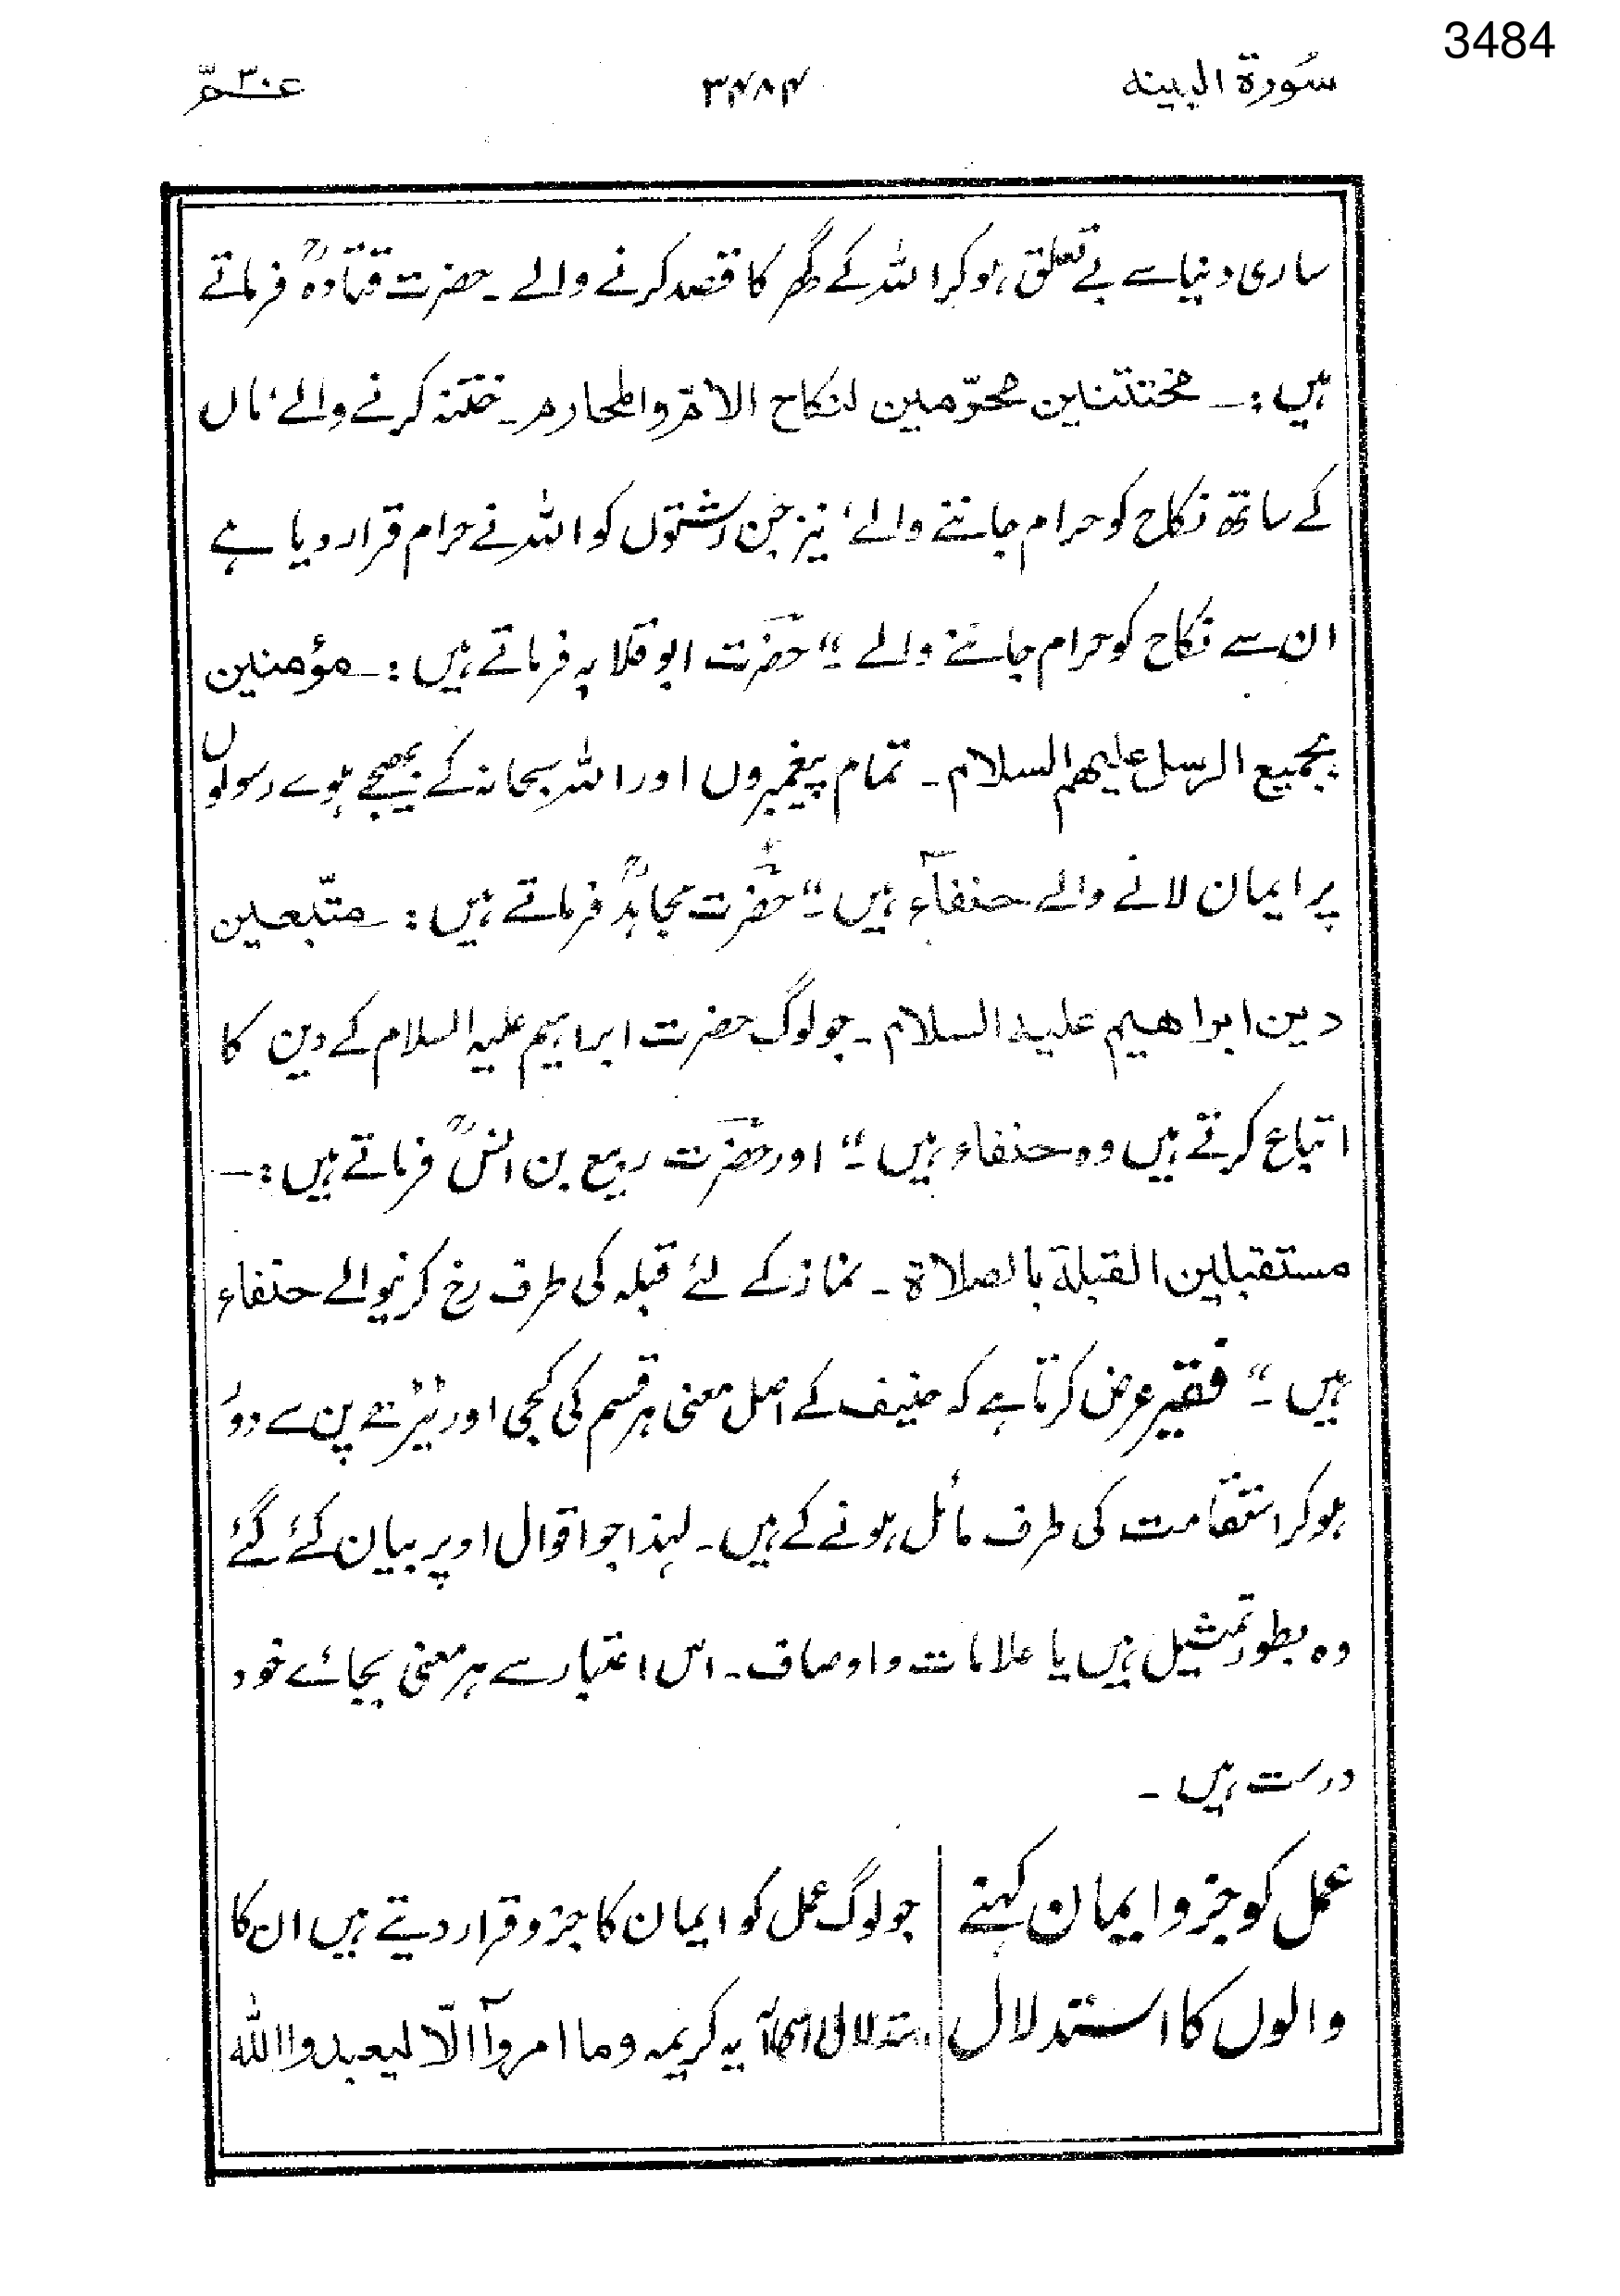 3484
سُورۃ البینہ ۳۴۸۴ عمّ ۳۰
ساری دنیا سے بے تعلق ہوکر اللہ کے گھر کا قصد کرنے والے ۔ حضرت قتادہؒ فرماتے
ہیں :۔ مختتنین محرّمین لنکاح الامّ والمحارم ۔ ختنہ کرنے والے، ماں
کے ساتھ نکاح کو حرام جاننے والے، نیز جن رشتوں کو اللہ نے حرام قرار دیا ہے
ان سے نکاح کو حرام جاننے والے ۔“ حضرت ابو قلابہ فرماتے ہیں :۔ مؤمنین
بجمیع الرسل علیھم السلام ۔ تمام پیغمبروں اور اللہ سبحانہ کے بھیجے ہوے رسولوں
پر ایمان لانے والے حنفآء ہیں ۔“ حضرت مجاہدؒ فرماتے ہیں :۔ متّبعین
دین ابراھیم علیہ السلام ۔ جو لوگ حضرت ابراہیم علیہ السلام کے دین کا
اتباع کرتے ہیں وہ حنفاء ہیں ۔“ اور حضرت ربیع بن انسؒ فرماتے ہیں :۔
مستقبلین القبلۃ بالصلاۃ ۔ نماز کے لئے قبلہ کی طرف رخ کرنیوالے حنفاء
ہیں ۔“ فقیر عرض کرتا ہے کہ حنیف کے اصل معنی ہر قسم کی کجی اور ٹیڑھے پن سے دور
ہوکر استقامت کی طرف مائل ہونے کے ہیں ۔ لہذا جو اقوال اوپر بیان کئے گئے
وہ بطور تمثیل ہیں یا علامات و اوصاف ۔ اس اعتبار سے ہر معنی بجائے خود
درست ہیں ۔
عمل کو جزو ایمان کہنے
والوں کا استدلال
جو لوگ عمل کو ایمان کا جزو قرار دیتے ہیں ان کا
استدلال اسی آیہ کریمہ وما امروآ الّا لیعبدوا اللہ